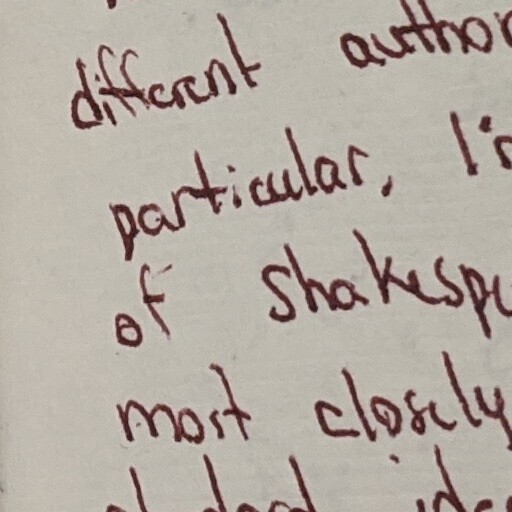 different author
particular, I'm
of Shakespe
most closely